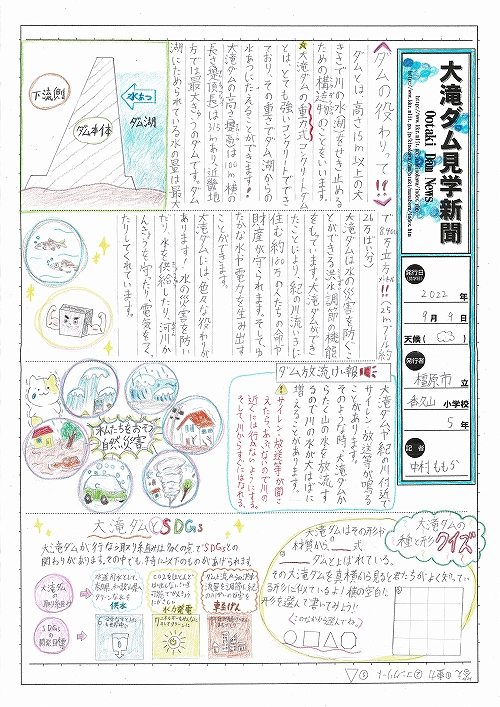 大滝ダム見学新聞
Ootaki Dam News
発行日
2022年
9月9日
天候( )
発行者
橿原市立
香久山小学校
5年
記者
ダムの役わりって!!?
ダムとは、高さ15m以上の大
きさで川の水、湖をせき止める
ための構造物のことをいいます。
大滝ダムの重力式コンクリートダム
とは、とても強いコンクリートでできて
おり、その重さでダム湖からの
水あつにたえることができます!
大滝ダムの高さ(堤高)は100m、横の
長さ(堤頂長)は315mあり、近畿地
方では最大きゅうのダムです。ダム
湖にためられている水の量は最大
下流側
水あつ
ダム湖
ダム本体
で8,400万立方メートル!!(25mプール約
26万ぱい分)
大滝ダムは水の災害を防ぐこ
とができる洪水調節の機能
をもっています。大滝ダムができ
たことにより、紀の川流いきに
住む約180万の人たちの命や
財産が守られます。そしてゆ
たかな水や電力を生み出す
ことができます。
大滝ダムには、色々な役わりが
あります!水の災害を防い
だり、水を供給したり、河川か
んきょうを守ったり、電気をつくっ
たりしてくれています。
私たちをおそう
自然災害
ダム放流け報
大滝ダムや紀の川付近で
サイレン、放送等が鳴る
ことがあります。
そのような時、大滝ダムか
らたく山の水を放流す
るので川の水が大はばに
増えることがあります。
サイレン、放送等が聞こ
えたらあぶないので川の
近くには行かないようにする。
そして川からすぐにはなれる。
大滝ダムとSDGs
大滝ダムが行なう取り組みは多くの点でSDGsとの
関わりがあります。その中でも、特に以下のものがあげられます。
大滝ダム
の
取り組み
供水
水力発電
SDGs
の
開発目標
大滝ダムの
種と形クイズ
大滝ダムはその形や
材質から、①式
②ダムとよばれている。
その大滝ダムを真横から見ると君たちがよく知ってい
る形に似ているよ!横の空白に
形を選んで書いてみよう!!
(このなかから選んでね)
○□△◇
答え ①重力 ②コンクリート ③△